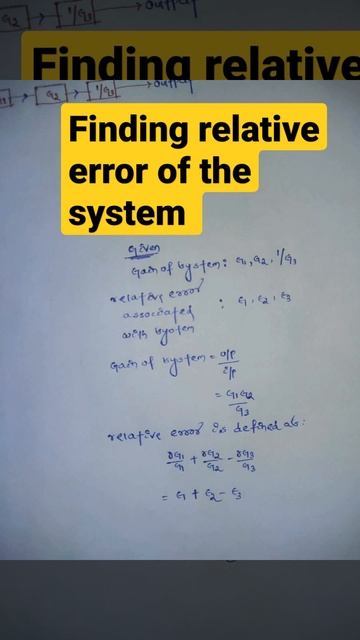 G2 → 1/G3 → output
Finding relative
G1 → G2 → 1/G3 → output
Finding relative
error of the
system
Given
Gain of system : G1, G2, 1/G3
relative error
associated : ε1, ε2, ε3
with system
Gain of system = o/p / i/p
= G1G2 / G3
relative error is defined as:
∂G1/G1 + ∂G2/G2 - ∂G3/G3
= ε1 + ε2 - ε3